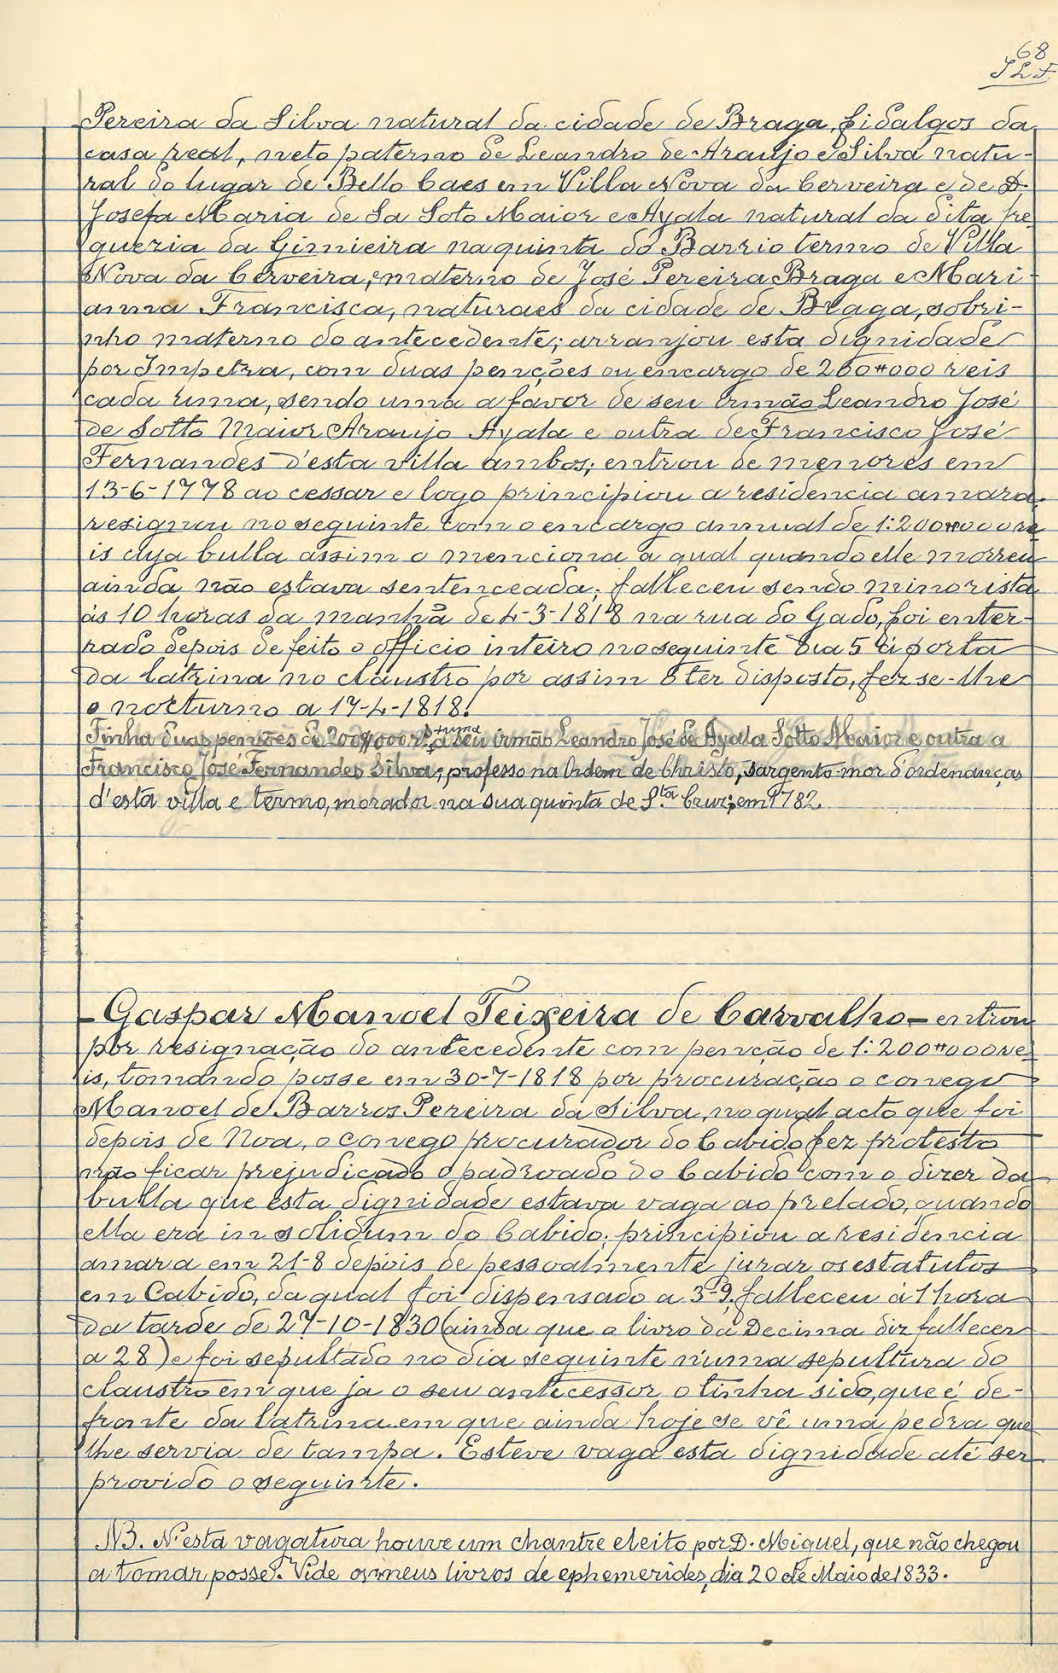 68
JLF
Pereira da Silva natural da cidade de Braga, fidalgos da
casa real, neto paterno de Leandro de Araujo e Silva natu-
ral do lugar de Bello Caes em Villa Nova da Cerveira e de D.
Josefa Maria de Sa Soto Maior e Ayala natural da dita fre
guezia da Gimieira na quinta do Barrio termo de Villa
Nova da Cerveira, e materno de José Pereira Braga e Mari-
anna Francisca, naturaes da cidade de Braga, sobri-
nho materno do antecedente; arranjou esta dignidade
por Impetra, com duas penções ou encargo de 260#000 reis
cada uma, sendo uma a favor de seu irmão Leandro José
de Sotto Maior Araujo Ayala e outra de Francisco José
Fernandes d'esta villa ambos; entrou de menores em
13-6-1778 ao cessar e logo principiou a residencia amara,
resignou no seguinte com o encargo annual de 1:200#000 re
is cuja bulla assim o menciona a qual quando elle morreu
ainda não estava sentenceada; falleceu sendo minorista
ás 10 horas da manhã de 4-3-1818 na rua do Gado, foi enter-
rado depois de feito o officio inteiro no seguinte dia 5 á porta
da latrina no claustro por assim o ter disposto, fez-se-lhe
o nocturno a 17-4-1818.
Tinha duas penções de 200#000 rs. + uma a seu irmão Leandro José de Ayala Sotto Maior e outra a
Francisco José Fernandes Silva, professo na Ordem de Christo, sargento-mor d'ordenanças
d'esta villa e termo, morador na sua quinta de Sta Cruz, em 1782.
- Gaspar Manoel Teixeira de Carvalho - entrou
por resignação do antecedente com penção de 1:200#000 re
is, tomando posse em 30-7-1818 por procuração o conego
Manoel de Barros Pereira da Silva, no qual acto que foi
depois de Noa, o conego procurador do Cabido fez protesto
não ficar prejudicado o padroado do Cabido com o dizer da
bulla que esta dignidade estava vaga ao prelado, quando
ella era in solidum do Cabido; principiou a residencia
amara em 21-8 depois de pessoalmente jurar os estatutos
em Cabido, da qual foi dispensado a 3-9. falleceu á 1 hora
da tarde de 27-10-1830 (ainda que o livro da Decima diz fallecer
a 28) e foi sepultado no dia seguinte n'uma sepultura do
claustro em que ja o seu antecessor o tinha sido, que é de-
fronte da latrina em que ainda hoje se vê uma pedra que
lhe servia de tampa. Esteve vaga esta dignidade até ser
provido o seguinte.
NB. N'esta vagatura houve um chantre eleito por D. Miguel, que não chegou
a tomar posse. Vide os meus livros de ephemerides, dia 20 de Maio de 1833.